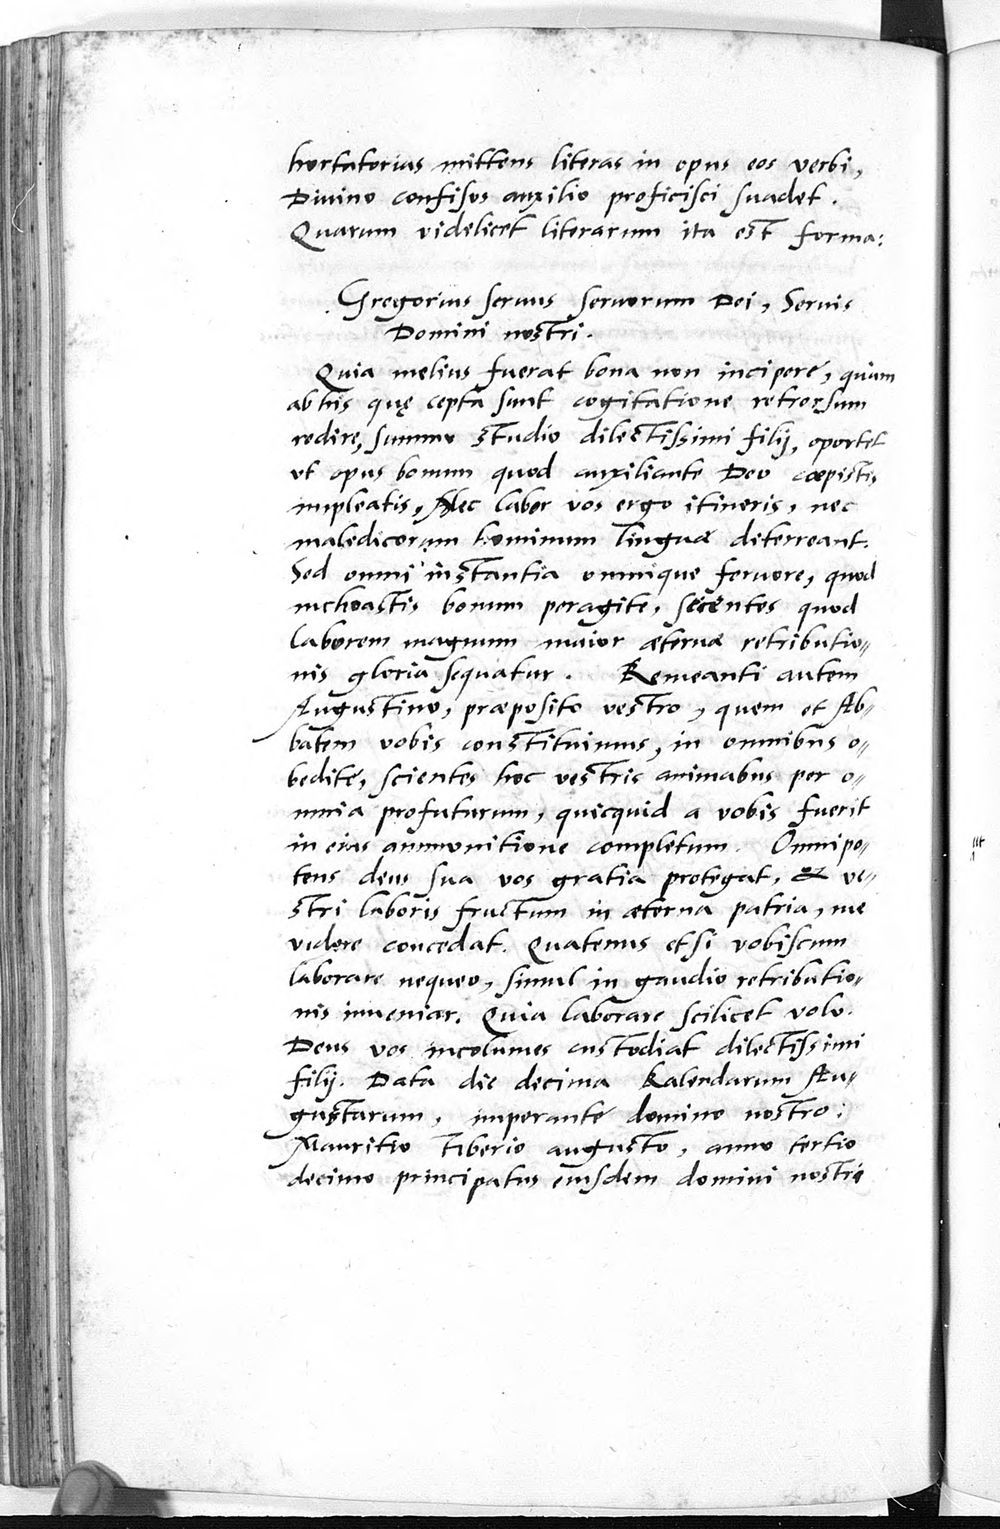 hortatorias mittens literas in opus eos verbi,
Diuino confisos auxilio proficisci suadet.
Quarum videlicet literarum ita est forma:
Gregorius seruus seruorum Dei, Seruis
Domini nostri.
Quia melius fuerat bona non incipere, quàm
ab his quę cepta sunt cogitatione retrorsum
redire, summo studio dilectissimi filij, oportet
vt opus bonum quod auxiliante Deo cœpistis
impleatis, Nec labor vos ergo itineris, nec
maledicorum hominum linguæ deterreant.
Sed omni instantia omnique feruore, quod
inchoastis bonum peragite, scientes quod
laborem magnum maior æternæ retributio„
nis gloria sequatur. Remeanti autem
Augustino, præposito vestro, quem et Ab„
batem vobis constituimus, in omnibus o„
bedite, scientes hoc vestris animabus per o„
mnia profuturum, quicquid a vobis fuerit
in eius ammonitione completum. Omnipo„
tens deus sua vos gratia protegat, & ve„
stri laboris fructum in æterna patria, me
videre concedat. Quatenus etsi vobiscum
laborare nequeo, simul in gaudio retributio„
nis inueniar. Quia laborare scilicet volo.
Deus vos incolumes custodiat dilectissimi
filij. Data die decima Kalendarum Au„
gustarum, imperante domino nostro:
Mauritio Tiberio augusto, anno tertio
decimo principatus eiusdem domini nostri